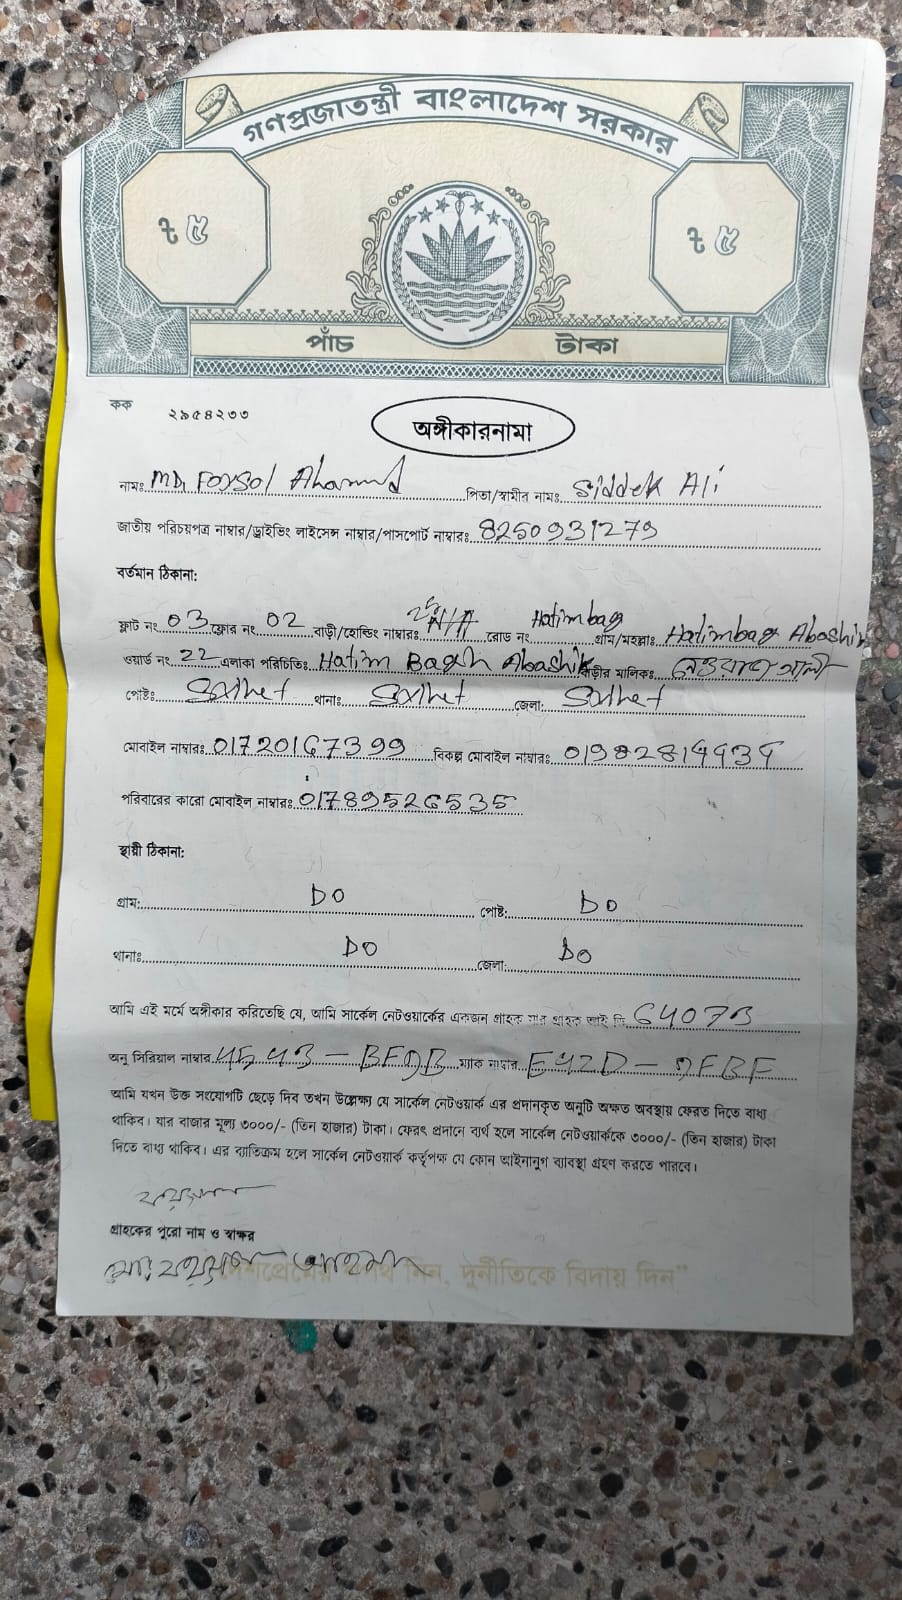 গণপ্রজাতন্ত্রী বাংলাদেশ সরকার
৳ ৫ ৳ ৫
পাঁচ টাকা
কক ২৯৫৪২৩৩
অঙ্গীকারনামা
নামঃ MD, Foysol Ahamed পিতা/স্বামীত নামঃ Siddek Ali
জাতীয় পরিচয়পত্র নাম্বার/ড্রাইভিং লাইসেন্স নাম্বার/পাসপোর্ট নাম্বারঃ 8250931279
বর্তমান ঠিকানা:
ফ্লাট নং 03 ফ্লোর নং 02 বাড়ী/হোল্ডিং নাম্বারঃ N/A রোড নং Hatimbag গ্রাম/মহল্লাঃ Hatimbag Abashik
ওয়ার্ড নং 22 এলাকা পরিচিতিঃ Hatim Bagh Abashik বাড়ীর মালিকঃ আলী
পোষ্টঃ Sylhet থানাঃ Sylhet জেলা: Sylhet
মোবাইল নাম্বারঃ 01720167399 বিকল্প মোবাইল নাম্বারঃ
পরিবারের কারো মোবাইল নাম্বারঃ 01789526535
স্থায়ী ঠিকানা:
গ্রাম: DO পোষ্ট: DO
থানাঃ DO জেলা: DO
আমি এই মর্মে অঙ্গীকার করিতেছি যে, আমি সার্কেল নেটওয়ার্কের একজন গ্রাহক যার গ্রাহক আই ডি 64073
অনু সিরিয়াল নাম্বার ম্যাক নাম্বার
আমি যখন উক্ত সংযোগটি ছেড়ে দিব তখন উল্লেক্ষ্য যে সার্কেল নেটওয়ার্ক এর প্রদানকৃত অনুটি অক্ষত অবস্থায় ফেরত দিতে বাধ্য
থাকিব। যার বাজার মূল্য ৩০০০/- (তিন হাজার) টাকা। ফেরৎ প্রদানে ব্যর্থ হলে সার্কেল নেটওয়ার্ককে ৩০০০/- (তিন হাজার) টাকা
দিতে বাধ্য থাকিব। এর ব্যতিক্রম হলে সার্কেল নেটওয়ার্ক কর্তৃপক্ষ যে কোন আইনানুগ ব্যাবস্থা গ্রহণ করতে পারবে।
ফয়সাল
গ্রাহকের পুরো নাম ও স্বাক্ষর
মোঃ ফয়সাল আহমদ
দেশপ্রেমের শপথ নিন, দুর্নীতিকে বিদায় দিন"